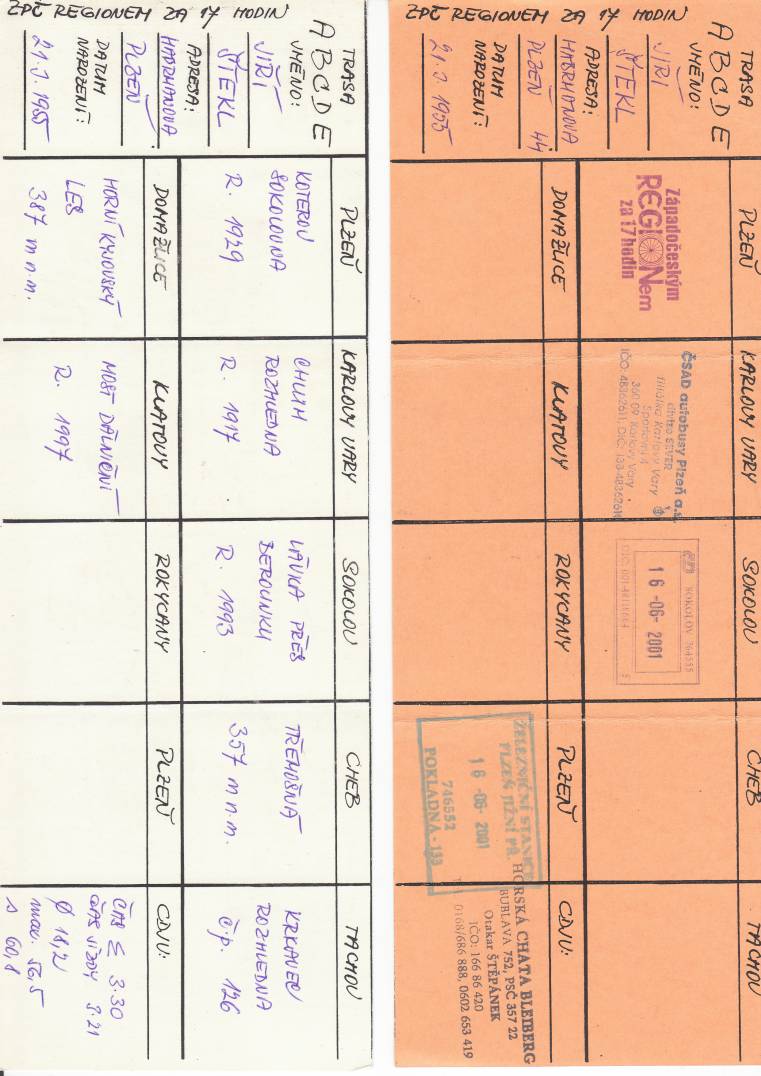 ZPČ REGIONEM ZA 17 HODIN
TRASA
A B C D E
JMÉNO:
JIŘÍ
ŠTEKL
ADRESA:
HABRMANOVA
PLZEŇ
DATUM
NAROZENÍ:
1955
PLZEŇ
KOTEROV
SOKOLOVNA
R. 1929
KARLOVY VARY
CHLUM
ROZHLEDNA
R. 1917
SOKOLOV
LÁVKA PŘES
BEROUNKU
R. 1993
CHEB
TŘEMOŠNÁ
357 m n.m.
TACHOV
KRKAVEC
ROZHLEDNA
Č.p. 126
DOMAŽLICE
HORNÍ KYJOVSKÝ
LES
387 m n.m.
KLATOVY
MOST DÁLNIČNÍ
R. 1997
ROKYCANY
PLZEŇ
CÍL:
ČAS Σ 3.30
ČAS JÍZDY 3.21
Ø 18,2
max. 56.5
s 60,8
ZPČ REGIONEM ZA 17 HODIN
TRASA
A B C D E
JMÉNO:
JIŘÍ
ŠTEKL
ADRESA:
HABRMANOVA
PLZEŇ 44
DATUM
NAROZENÍ:
1955
PLZEŇ
Západočeským
REGIONem
za 17 hodin
KARLOVY VARY
ČSAD autobusy Plzeň a.s.
divize SEVER
filiálka Karlovy Vary
Sportovní 4
360 09 Karlovy Vary
IČO: 48362611, DIČ: 138-48362611
SOKOLOV
SOKOLOV 364555
16 -06- 2001
5
CHEB
TACHOV
DOMAŽLICE
KLATOVY
ROKYCANY
PLZEŇ
ŽELEZNIČNÍ STANICE
PLZEŇ JIŽNÍ PŘ.
16 -06- 2001
746552
POKLADNA - 133
CÍL:
HORSKÁ CHATA BLEIBERG
BUBLAVA 752, PSČ 357 22
Otakar ŠTĚPÁNEK
IČO: 166 86 420
0168/686 888, 0602 653 419